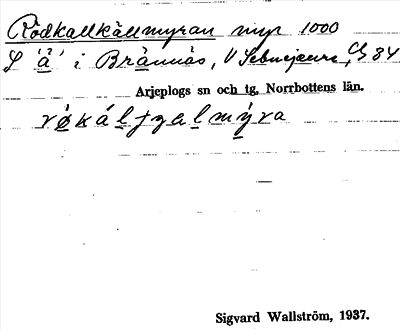 Rödkallkällmyran myr 1000
S "ä" i Brännäs, V Sebnejaure, Ch 84
Arjeplogs sn och tg, Norrbottens län.
røkáltjalmýra
Sigvard Wallström, 1937.